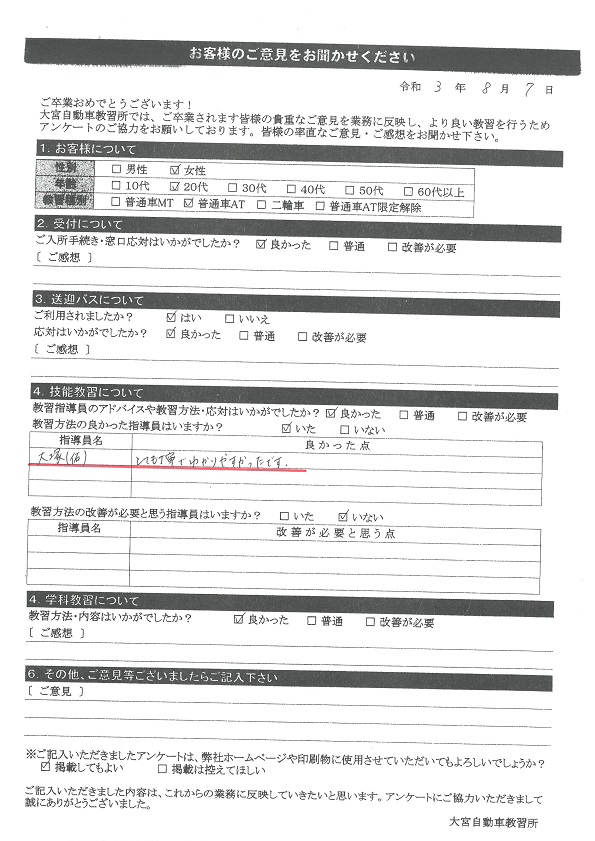 お客様のご意見をお聞かせください
令和 3 年 8 月 7 日
ご卒業おめでとうございます！
大宮自動車教習所では、ご卒業されます皆様の貴重なご意見を業務に反映し、より良い教習を行うため
アンケートのご協力をお願いしております。皆様の率直なご意見・ご感想をお聞かせ下さい。
1. お客様について
性別 □ 男性 ☑ 女性
年齢 □ 10代 ☑ 20代 □ 30代 □ 40代 □ 50代 □ 60代以上
教習種別 □ 普通車MT ☑ 普通車AT □ 二輪車 □ 普通車AT限定解除
2. 受付について
ご入所手続き・窓口応対はいかがでしたか？ ☑ 良かった □ 普通 □ 改善が必要
〔 ご感想 〕
3. 送迎バスについて
ご利用されましたか？ ☑ はい □ いいえ
応対はいかがでしたか？ ☑ 良かった □ 普通 □ 改善が必要
〔 ご感想 〕
4. 技能教習について
教習指導員のアドバイスや教習方法・応対はいかがでしたか？ ☑ 良かった □ 普通 □ 改善が必要
教習方法の良かった指導員はいますか？ ☑ いた □ いない
指導員名 良かった点
大塚(佑) とても丁寧でわかりやすかったです。
教習方法の改善が必要と思う指導員はいますか？ □ いた ☑ いない
指導員名 改善が必要と思う点
4. 学科教習について
教習方法・内容はいかがでしたか？ ☑ 良かった □ 普通 □ 改善が必要
〔 ご感想 〕
6. その他、ご意見等ございましたらご記入下さい
〔 ご意見 〕
※ご記入いただきましたアンケートは、弊社ホームページや印刷物に使用させていただいてもよろしいでしょうか？
☑ 掲載してもよい □ 掲載は控えてほしい
ご記入いただきました内容は、これからの業務に反映していきたいと思います。アンケートにご協力いただきまして
誠にありがとうございました。
大宮自動車教習所